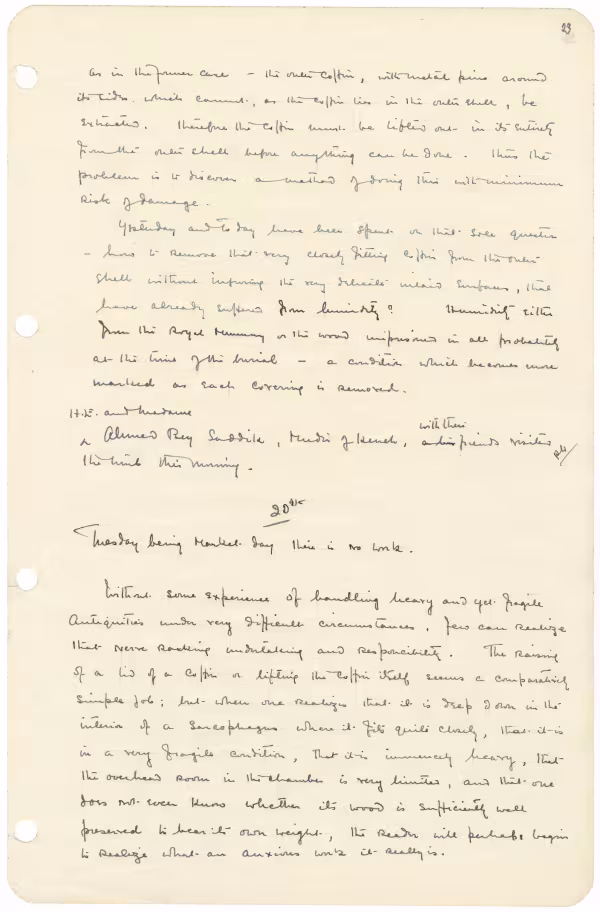 23
as in the former case – the outer coffin, with metal pins around
its sides which cannot, as the coffin lies in the outer shell, be
extracted. Therefore the coffin must be lifted out in its entirety
from the outer shell before anything can be done. Thus the
problem is to discover a method of doing this with minimum
risk of damage.
Yesterday and today have been spent on that sole question
– how to remove that very closely fitting coffin from the outer
shell without injuring the very delicate inlaid surface, that
have already suffered from humidity? Humidity either
from the Royal Mummy or the wood imprisoned in all probability
at the time of the burial – a condition which becomes more
marked as each covering is removed.
H.E. and Madame
Ahmed Bey Saddik, Mudir of Keneh, with their friends visited
the tomb this morning.
20th
Tuesday being Market day there is no work.
Without some experience of handling heavy and yet fragile
Antiquities under very difficult circumstances, few can realize
that nerve racking undertaking and responcibility. The raising
of a lid of a coffin or lifting the coffin itself seems a comparatively
simple job; but when one realizes that it is deep down in the
interior of a sarcophagus where it fits quite closely, that it is
in a very fragile condition, that it is immencely heavy, that
the overhead room in the chamber is very limited, and that one
does not even know whether its wood is sufficiently well
preserved to bear its own weight, the reader will perhaps begin
to realize what an anxious work it really is.